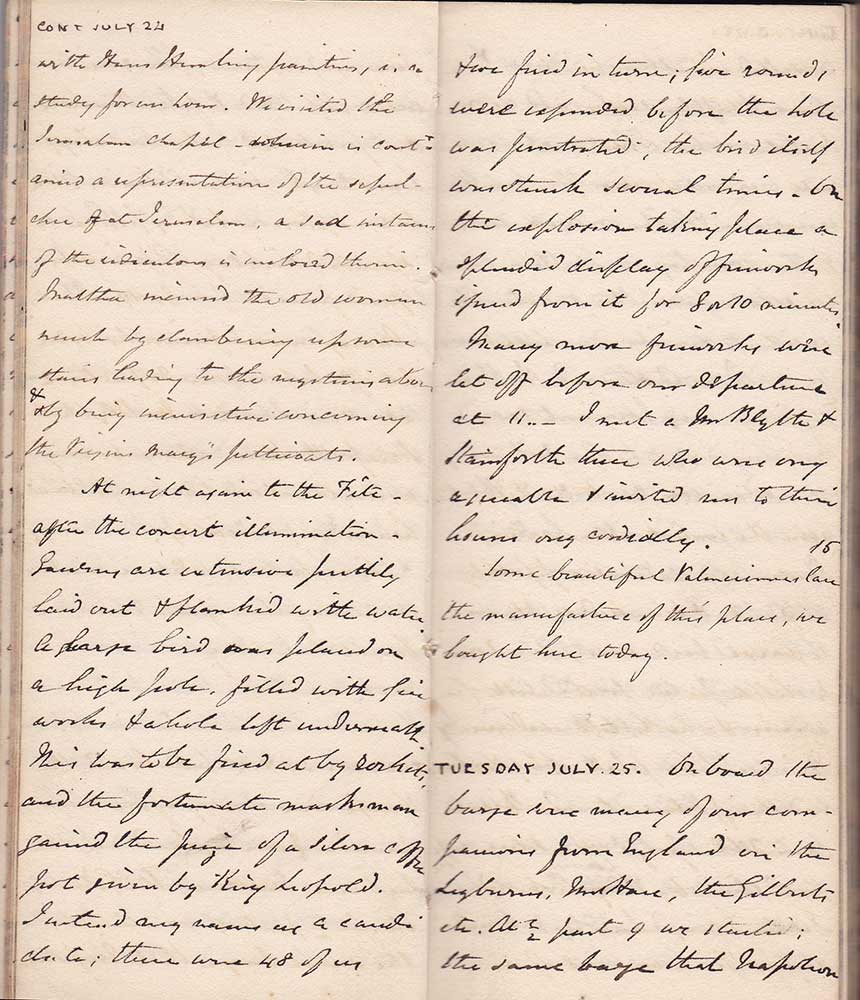 CONT JULY 24
with Hans Hemling paintings, is a
study for an hour. We visited the
Jerusalem Chapel - wherein is cont-
ained a representation of the sepul-
chre of at Jerusalem, a sad instance
of the ridiculous is inclosed therin.
Martha incensed the old woman
much by clambering up some
stairs leading to the mysteries above
& by being inquisitive concerning
the Virgin Mary's petticoats.
At night again to the Fête -
after the concert illumination -
Gardens are extensive prettily
laid out & flanked with water
A large bird was placed on
a high pole, filled with fire
works & a hole left underneath
This was to be fired at by rockets,
and the fortunate marksman
gained the prize of a silver coffee
pot given by King Leopold.
I entered my name as a candi
date; there were 48 of us
& we fired in turn; five rounds
were expended before the hole
was penetrated, the bird itself
was struck several times - On
the explosion taking place a
splendid display of fireworks
issued from it for 8 or 10 minutes
Many more fireworks were
let off before our departure
at 11.. - I met a Mr Blythe &
Stainforth there who were very
agreeable & invited us to their
houses very cordially. 15
Some beautiful Valenciennes lace
the manufacture of this place, we
bought here today.
TUESDAY JULY. 25. On board the
barge were many of our com-
panions from England viz the
Mr Hare, the Gilberts
etc. At ½ past 9 we started;
the same barge that Napoleon